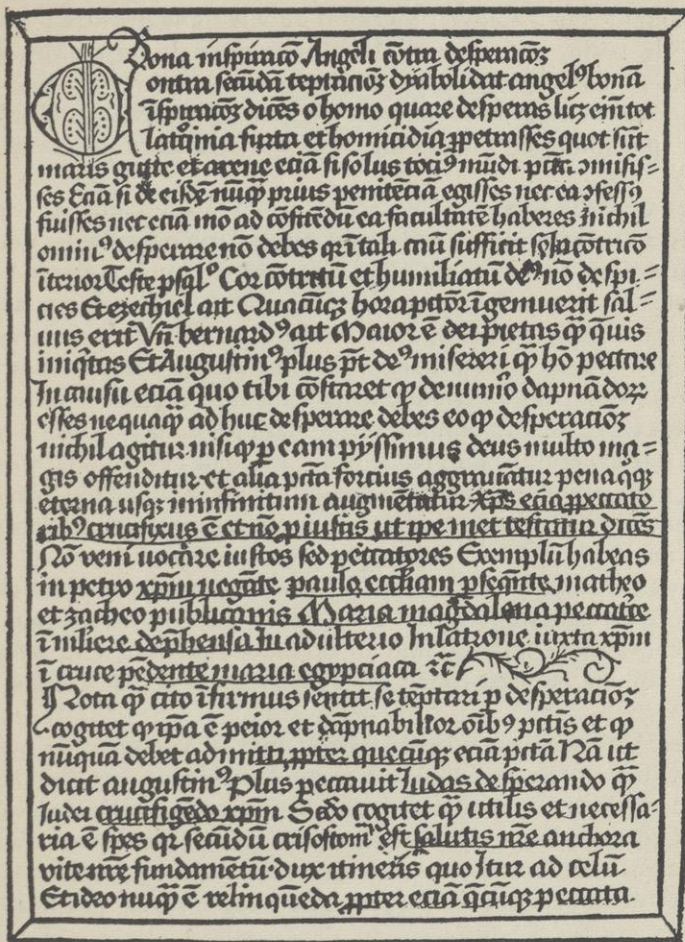 Bona inspiracō Angeli cōtra desperacōꝫ
Contra secūdā teptaciōꝫ dyaboli dat angelꝰ bonā
īspiracōꝫ dicēs o homo quare desperas licꝫ eīn tot
latocinia furta et homicidia ꝓpetrasses quot sūt
maris gutte et arene eciā si solus tociꝰ mūdi pctā ↄmisis=
ses Eciā si de eisdē nūꝙ prius penitēciā egisses nec ea ↄfessꝰ
fuisses nec eciā mō ad cōfitēdū ea facultatē haberes Nichil
ominꝰ desperare nō debes qꝛ ī tali casu sufficit sola cōtricō
īterior Teste psalꝰ Cor cōtritū et humiliatū deꝰ nō despi=
cies Et ezechiel ait Quacūqꝫ hora pctōr īgemuerit sal=
uus erit Vn̄ bernardꝰ ait Maior ē dei pietas ꝙ̄ quīs
iniqͥtas Et Augustinꝰ plus pt̄ deꝰ misereri ꝙ̄ hō peccare
In casu eciā quo tibi cōstaret ꝙ de numō dapnādoꝝ
esses nequaꝙ̄ ad huc desperare debes eo ꝙ desperaciōꝫ
nichil agitur nisi ꝙ ꝑ eam pijssimus deus multo ma=
gis offenditur et alia pctā forcius aggrauātur pena qͦꝫ
eterna usqꝫ in infinitum augmētatur Xp̄s eciā ꝓ peccato
ribꝰ crucifixus ē et nō ꝓ iustis ut ip̄e met testatur dicēs
Nō veni uocare iustos sed peccatores Exemplū habeas
in petro xp̄m negāte paulo eccliam ꝑseqn̄te matheo
et zacheo publicanis Maria magdalena peccatͥce
ī muliere deꝑhensa in adulterio In latrone iuxta xp̄m
ī cruce pēdente maria egypciaca ⁊c̄
Nota ꝙ̄ cito īfirmus sentit se tēptari ꝑ desperaciōꝫ
cogitet ꝙ ip̄a ē peior et dāpnabilior oībꝰ pctīs et ꝙ
nūquā debet admitti ꝓpter quecūqꝫ eciā pctā Nā ut
dicit augustinꝰ Plus peccauit Iudas desperando ꝙ̄
Iudei crucifigēdo xp̄m Scdo cogitet ꝙ̄ utilis et necessa=
ria ē spes qꝛ secūdū crisostomꝰ est salutis nr̄e anchora
vite nr̄e fundamētū dux itineris quo Itur ad celū
Et ideo nūꝙ̄ ē relinquēda ꝓpter eciā qͣcūqꝫ peccata